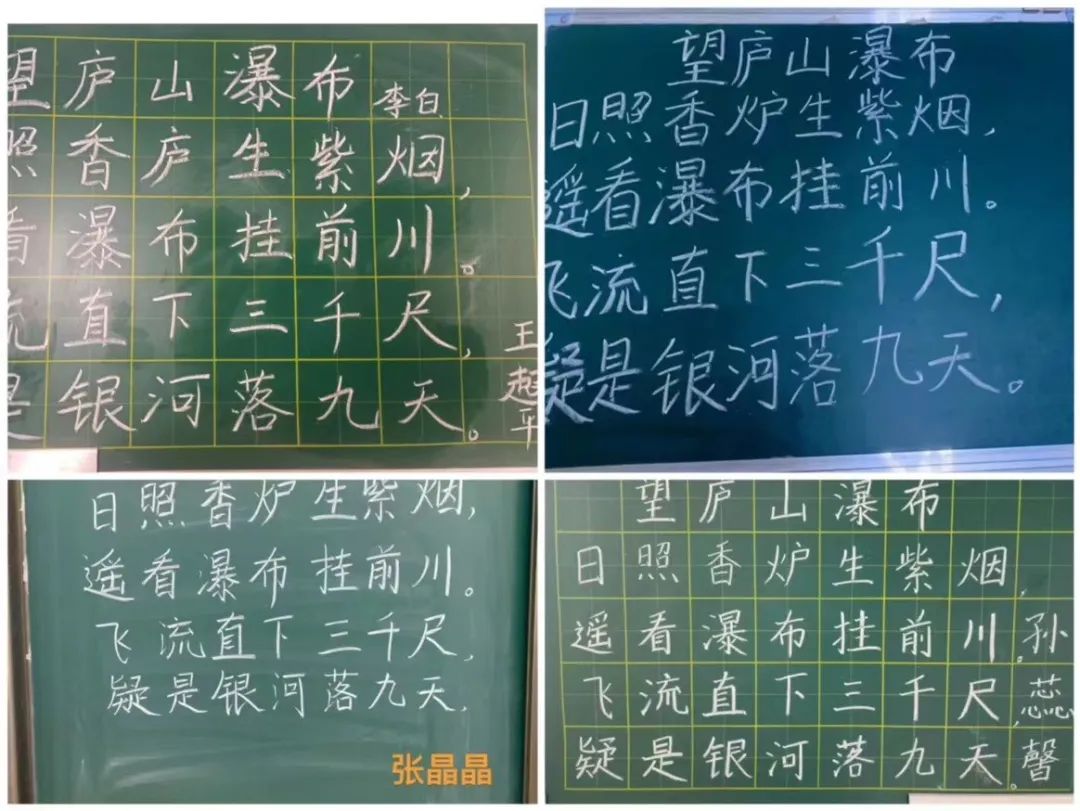 望庐山瀑布 李白
照香庐生紫烟，
看瀑布挂前川。
流直下三千尺，
是银河落九天。
王
平
望庐山瀑布
日照香炉生紫烟，
遥看瀑布挂前川。
飞流直下三千尺，
疑是银河落九天。
日照香炉生紫烟，
遥看瀑布挂前川。
飞流直下三千尺，
疑是银河落九天，
张晶晶
望庐山瀑布
日照香炉生紫烟，
遥看瀑布挂前川。
飞流直下三千尺，
疑是银河落九天。
孙蕊馨